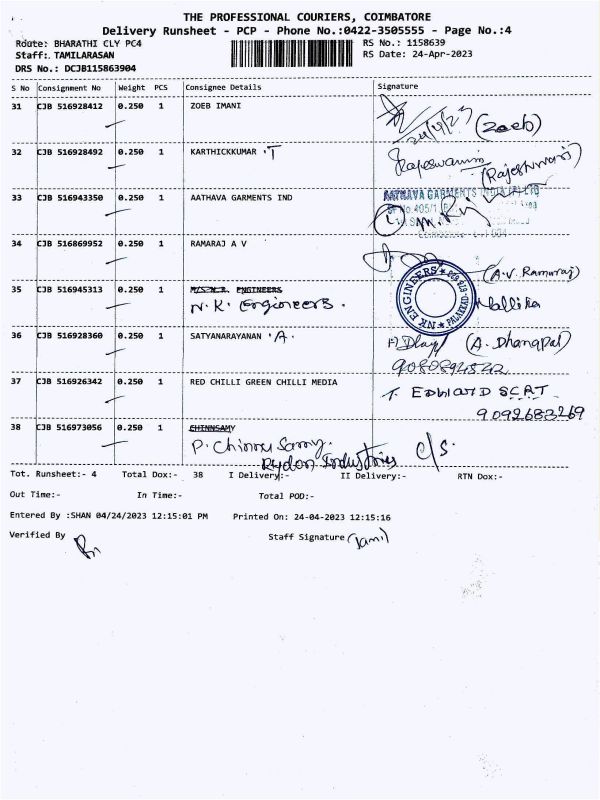 THE PROFESSIONAL COURIERS, COIMBATORE
Delivery Runsheet - PCP - Phone No.:0422-3505555 - Page No.:4
Route: BHARATHI CLY PC4
RS No.: 1158639
Staff:. TAMILARASAN
RS Date: 24-Apr-2023
DRS No.: DCJB115863904
S No Consignment No Weight PCS Consignee Details Signature
31 CJB 516928412 0.250 1 ZOEB IMANI
24/4/23 (Zoeb)
32 CJB 516928492 0.250 1 KARTHICKKUMAR .T
Rajeswarim
(Rajeshwari)
33 CJB 516943350 0.250 1 AATHAVA GARMENTS IND
AATHAVA GARMENTS INDIA (P) LTD
34 CJB 516869952 0.250 1 RAMARAJ A V
(A.V. Ramuraj)
35 CJB 516945313 0.250 1 M/S N.R. ENGINEERS
N.K. Engineers.
NK ENGINEERS
PALAKKAD
Mallika
36 CJB 516928360 0.250 1 SATYANARAYANAN .A.
(A. Dhanapal)
37 CJB 516926342 0.250 1 RED CHILLI GREEN CHILLI MEDIA
T. EDWARD SCAT
9092683269
38 CJB 516973056 0.250 1 CHINNSAMY
P. Chinnu Samy.
Rydon Industries C/S.
Tot. Runsheet:- 4 Total Dox:- 38 I Delivery:- II Delivery:- RTN Dox:-
Out Time:- In Time:- Total POD:-
Entered By :SHAN 04/24/2023 12:15:01 PM Printed On: 24-04-2023 12:15:16
Verified By Staff Signature (Tamil)